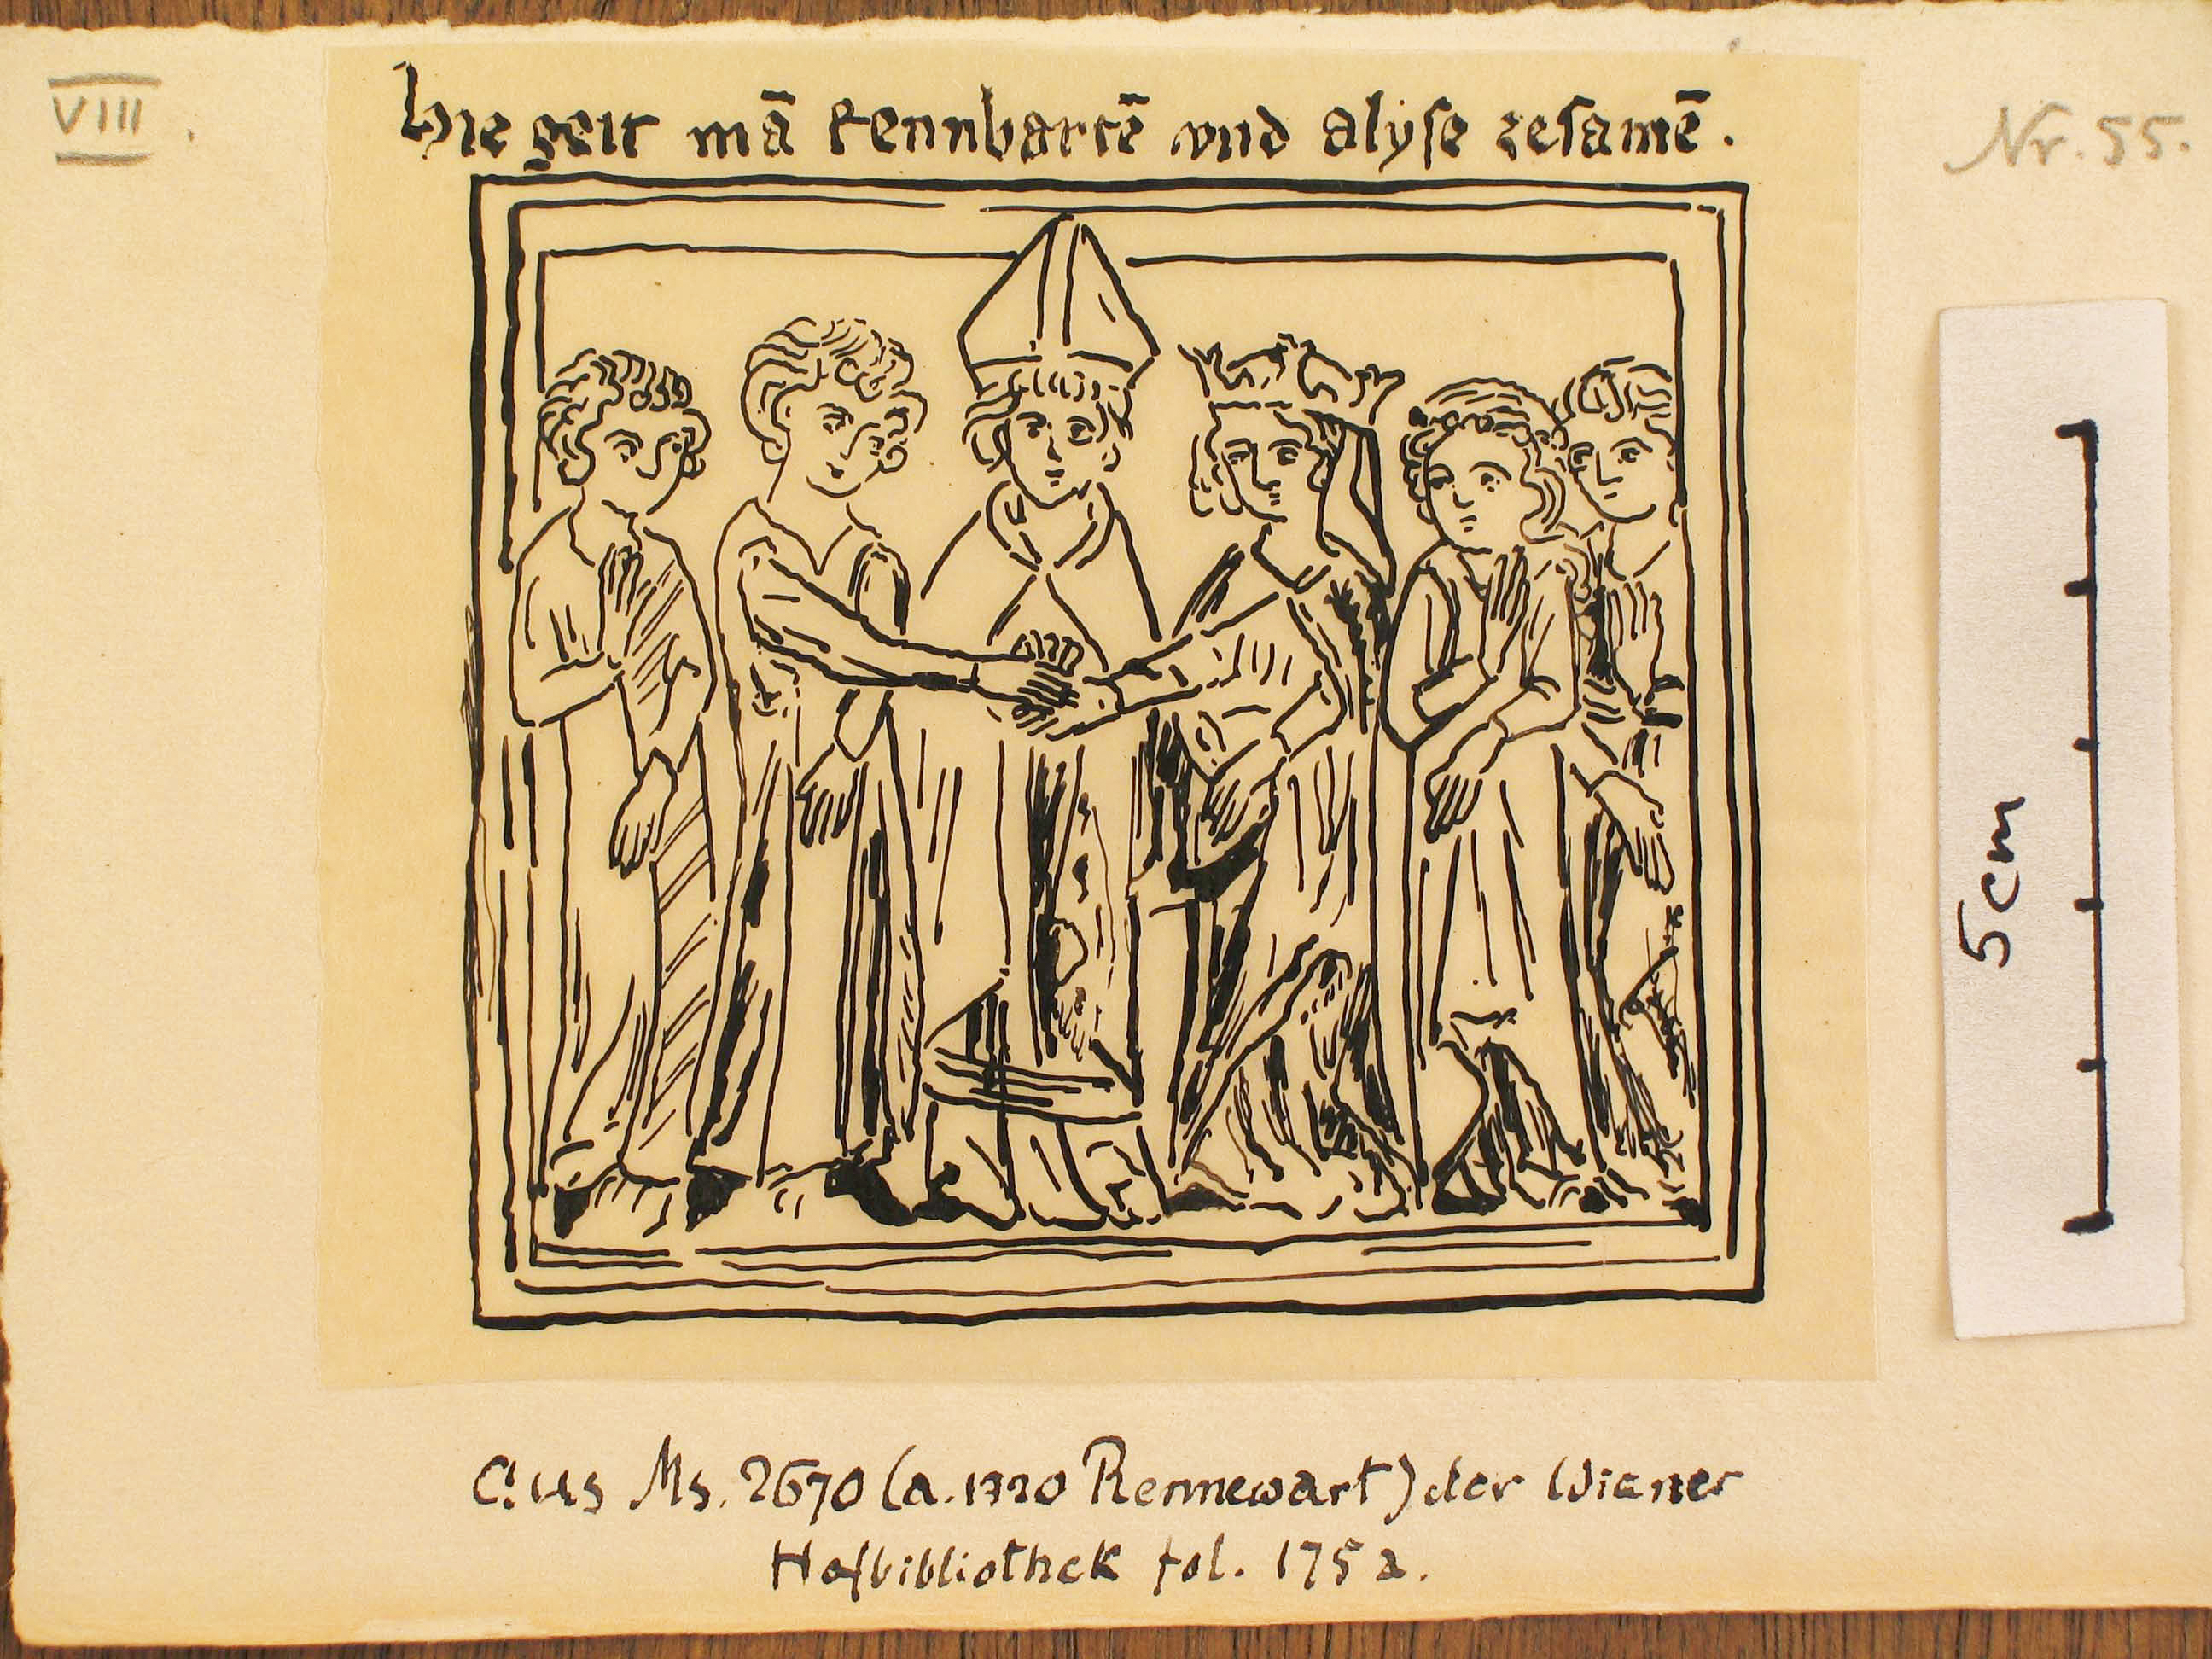 VIII.
Nr. 55.
hie geit mā Rennbartē vnd alyse zesamē.
5 cm
Aus Ms. 2670 (a. 1320 Rennewart) der Wiener
Hofbibliothek fol. 175 a.